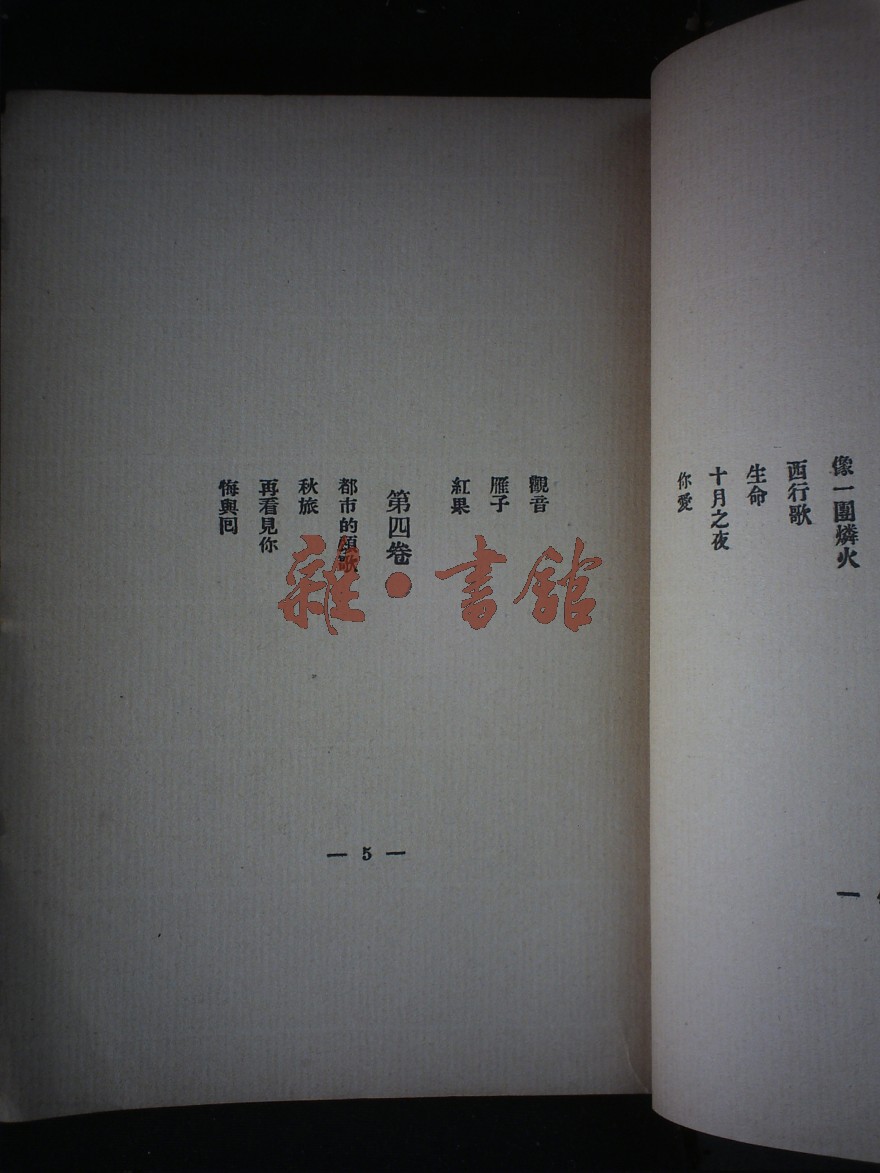 像一團燐火
西行歌
生命
十月之夜
你愛
觀音
雁子
紅果
第四卷
都市的頌歌
秋旅
再看見你
悔與回
— 5 —
雜·書館